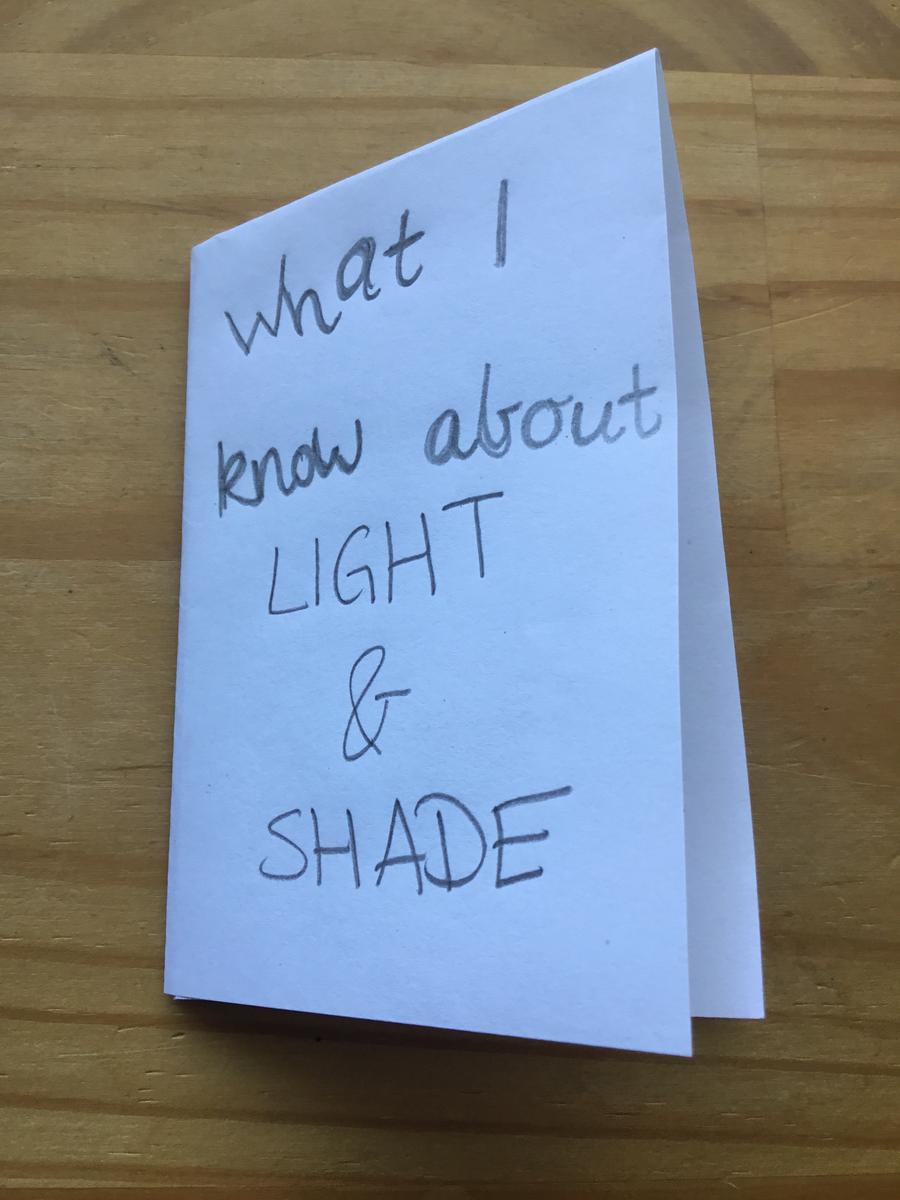 what I
know about
LIGHT
&
SHADE